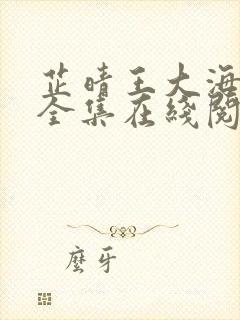 芷晴王大海
全集在线阅
麼牙